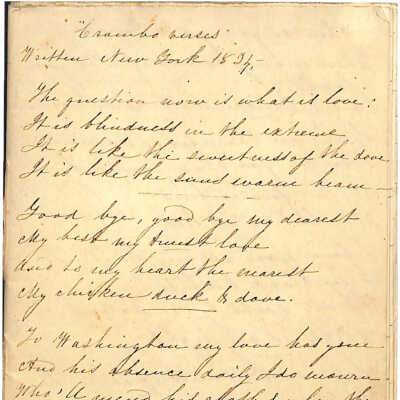 "Crambo verses"
Written New York 1894,
The question now is what is love?
It is blindness in the extreme
It is like the sweetness of the dove
It is like the suns warm beam
Good bye, good bye my dearest
My best my truest love
And to my heart the nearest
My chicken duck & dove.
To Washington my love has gone
And his absence daily I do mourn
Who'll mend his clothes